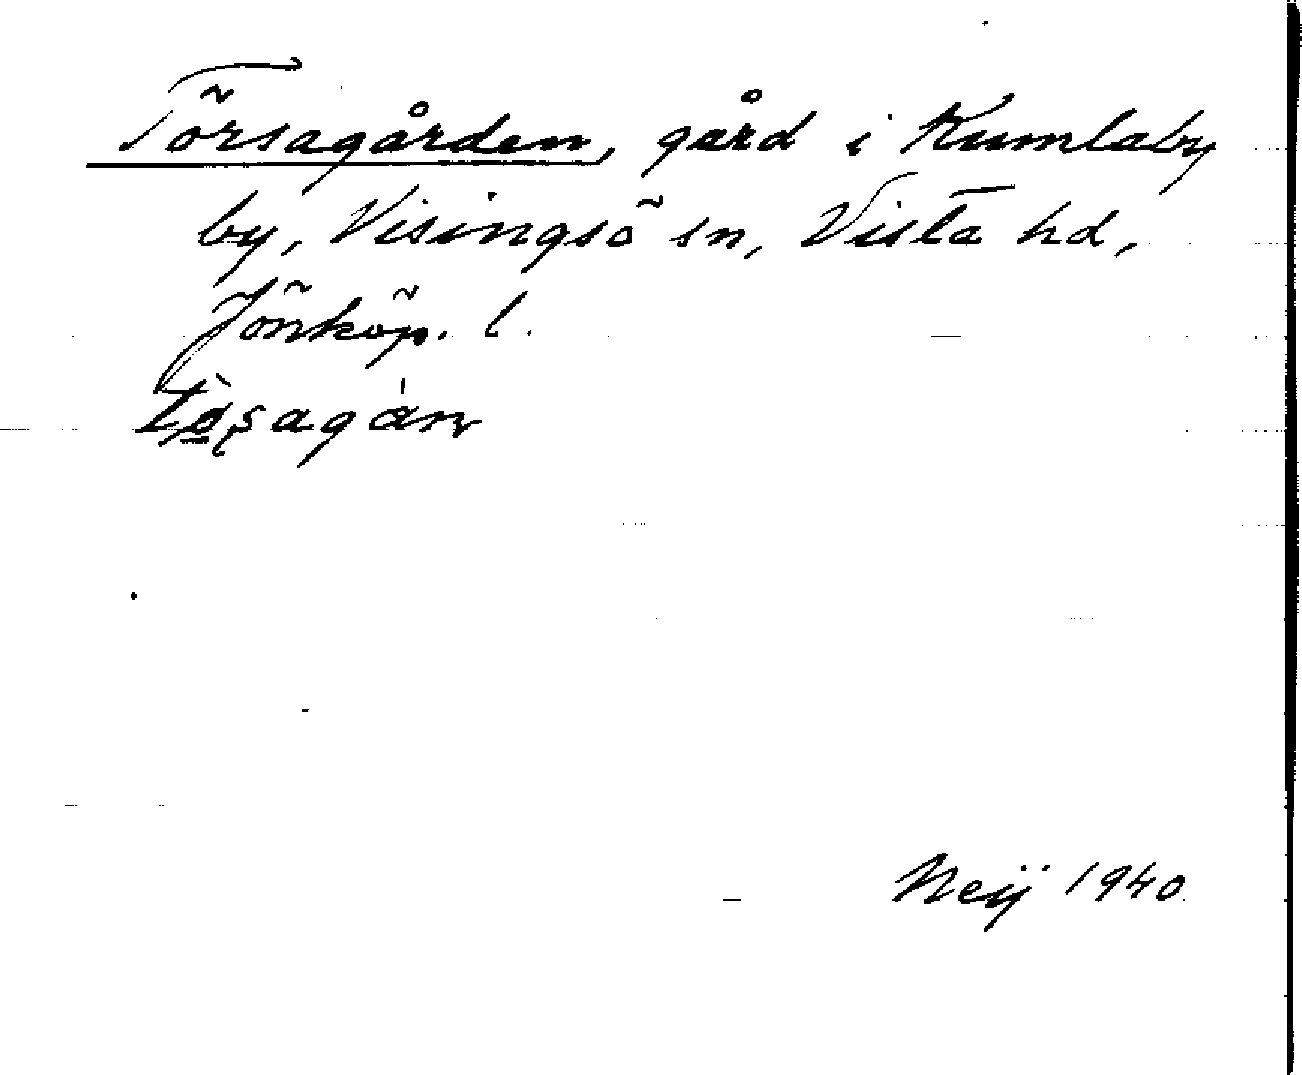 Törsagården, gård i Kumlaby
by, Visingsö sn, Vista hd,
Jönköp. l.
tø̀ṣagán
Neij 1940